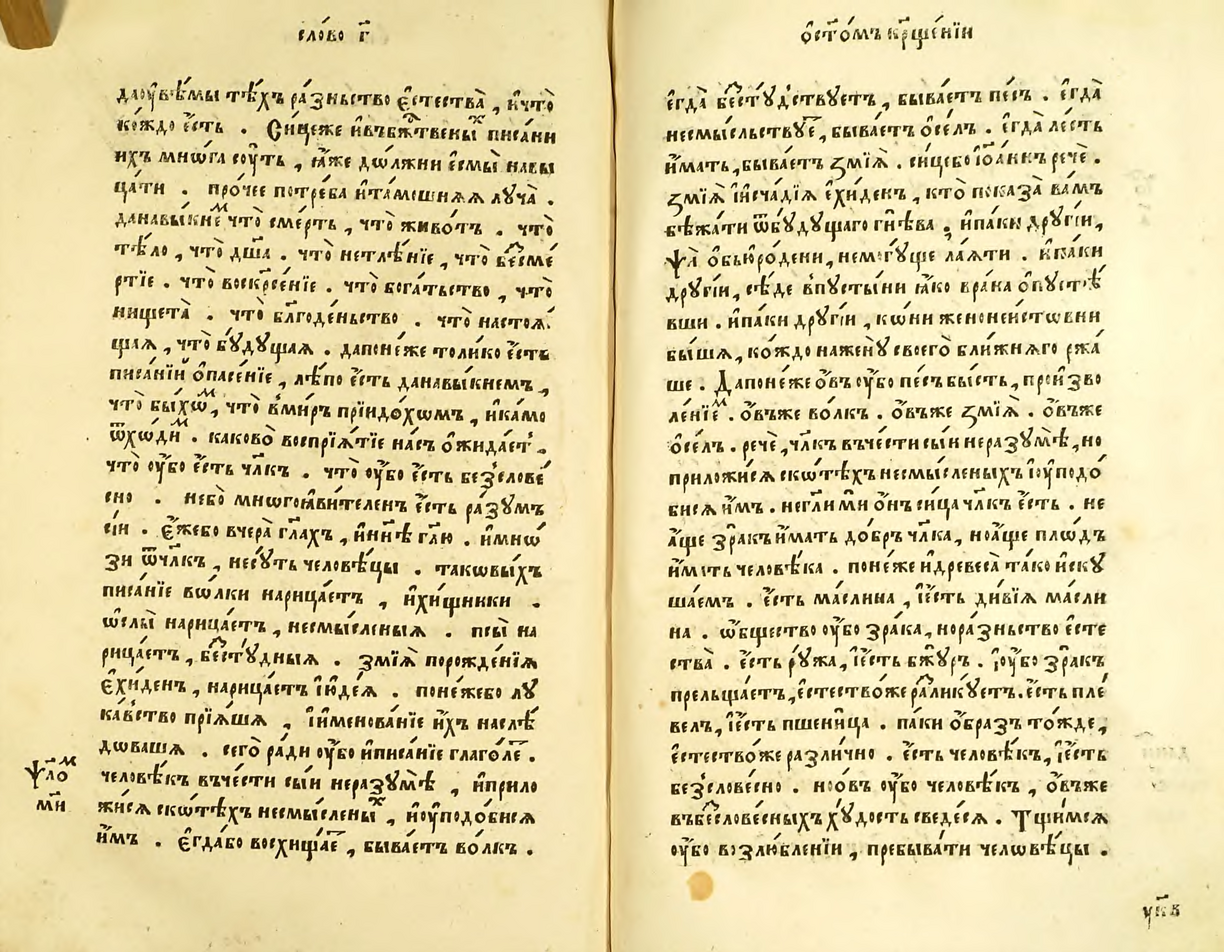 сло́во г҃
даᲂу҆вѣ́мы тѣ́хъ ра́зньство є҆стества̀ , и҆что̀
ко́ждо є҆́сть . Си́цеже и҆въбж҃твены́ⷯ писа́ни
и҆хъ мнѡ́га сᲂу́ть , ꙗ҆́же дѡ́лжни є҆смы̀ навы
ца́ти . про́чее потре́ба и҆та́мошнѧѧ лꙋча̀ .
данавы́кнеⷨ что̀ сме́рть , что̀ живо́тъ . что̀
тѣ́ло , что̀ дш҃а . что̀ нетлѣ́нїе , что̀ бесме́
ртїе . что̀ воскрⷭ҇е́нїе . что̀ бога́тьство , что̀
нищета̀ . что̀ бл҃годе́ньство . что̀ настоѧ́
щаѧ , что̀ бꙋ́дꙋщаѧ . дапоне́же толи́ко є҆́сть
писа́нїй ѻ҆пасе́нїе , лѣ́по є҆́сть данавы́кнемъ ,
что̀ бы́хѡⷨ , что̀ в̾ми́ръ прїидо́хѡмъ , и҆ка́мо
ѿхѡ́диⷨ . каково̀ воспрїѧ́тїе на́съ ѻ҆жида́етъ .
что̀ ᲂу҆́бо є҆́сть чл҃къ . что̀ ᲂу҆́бо є҆́сть без̾слове́
сно . не́бо мнѡгоꙗ҆ви́теленъ є҆́сть ра́зꙋмъ
сі́и . Є҆́жебо вчера̀ гл҃ахъ , и҆ны́нѣ гл҃ю . и҆мнѡ́
зи ѿчл҃къ , несꙋ́ть человѣ́цы . такѡвы́хъ
писа́нїе вѡ́лки нарица́етъ , и҆хи́щники .
ѡ҆слы̀ нарица́етъ , несмы́сленыѧ . псы̀ на
рица́етъ , бестꙋ́дныѧ . змїѧ̀ порожде́нїѧ
є҆хи́денъ , нарица́етъ і҆юде́ѧ . поне́жебо лꙋ
ка́вство прїѧ́шѧ , і҆именова́нїе и҆́хъ наслѣ́
дѡвашѧ . сего̀ ра́ди ᲂу҆́бо и҆писа́нїе глаго́леⷮ .
человѣ́къ въче́сти сы́и неразꙋмѣ̀ , и҆прило
жи́сѧ скѡтѣ́хъ несмы́сленыⷯ , и҆ᲂу҆подо́бисѧ
и҆́мъ . є҆гда́бо восхища́еⷮ , быва́етъ во́лкъ .
ѱаⷧ҇оⷨ
м҃и
ѻ҆ст҃о́мъ кр҃ще́нїи
є҆гда̀ бестꙋ́дствꙋетъ , быва́етъ пе́съ . є҆гда̀
несмы́сльствꙋеⷮ , быва́етъ ѻ҆се́лъ . є҆гда̀ ле́сть
и҆́мать , быва́етъ ѕмїѧ̀ . си́цебо і҆ѡа́ннъ речѐ .
ѕмїѧ̀ і҆исча́дїѧ є҆хи́денъ , кто̀ показа̀ ва́мъ
бѣжа́ти ѿбꙋ́дꙋщаго гнѣ́ва , и҆па́ки дрꙋгі́и ,
ѱѝ ѻ҆бью҆ро́дени , немо́гꙋще ла́ѧти . и҆па́ки
дрꙋгі́и , сѣ́де в̾пꙋсты́ни ꙗ҆́ко вра́на ѻ҆пꙋстѣ́
вши . и҆па́ки дрꙋгі́и , кѡ́ни женонеи́стѡвни
бы́шѧ , ко́ждо наженꙋ̀ своего̀ бли́жнѧго ржа́
ше . Дапоне́же ѻ҆́въ ᲂу҆́бо пе́съ бы́сть , произво
ле́нїеⷨ . ѻ҆́въже во́лкъ . ѻ҆́въже ѕмїѧ̀ . ѻ҆́въже
ѻ҆се́лъ . речѐ , чл҃къ въче́сти сы́и неразꙋмѣ̀ , но
приложи́сѧ скѡтѣ́хъ несмы́сленыхъ і҆ᲂу҆подо́
бисѧ и҆́мъ . негл҃и ми ѻ҆́нъсица чл҃къ є҆́сть . не
а҆́ще зра́къ и҆́мать до́бръ чл҃ка , ноа҆́ще пло́дъ
и҆́мать человѣ́ка . поне́же и҆древеса̀ та́ко и҆скꙋ
ша́емъ . є҆́сть ма́слина , і҆є҆́сть ди́вїѧ ма́сли
на . ѡ҆́бщество ᲂу҆́бо зра́ка , нора́зньство є҆сте
ства̀ . є҆́сть рꙋ́жа , і҆є҆́сть бжꙋ́ръ . і҆ᲂу҆́бо зра́къ
прельща́етъ , є҆стество́же разликꙋ́етъ . є҆́сть пле́
велъ , і҆є҆́сть пшени́ца . па́ки ѻ҆́бразъ то́жде ,
є҆стество́же разли́чно . є҆́сть человѣ́къ , і҆є҆́сть
без̾слове́сно . ноѻ҆́въ ᲂу҆́бо человѣ́къ , ѻ҆́въже
въбесслове́сныхъ хꙋ́дость сведе́сѧ . Тщи́мсѧ
ᲂу҆́бо возлю́бленїи , пребыва́ти челѡвѣ́цы .
ук҃в